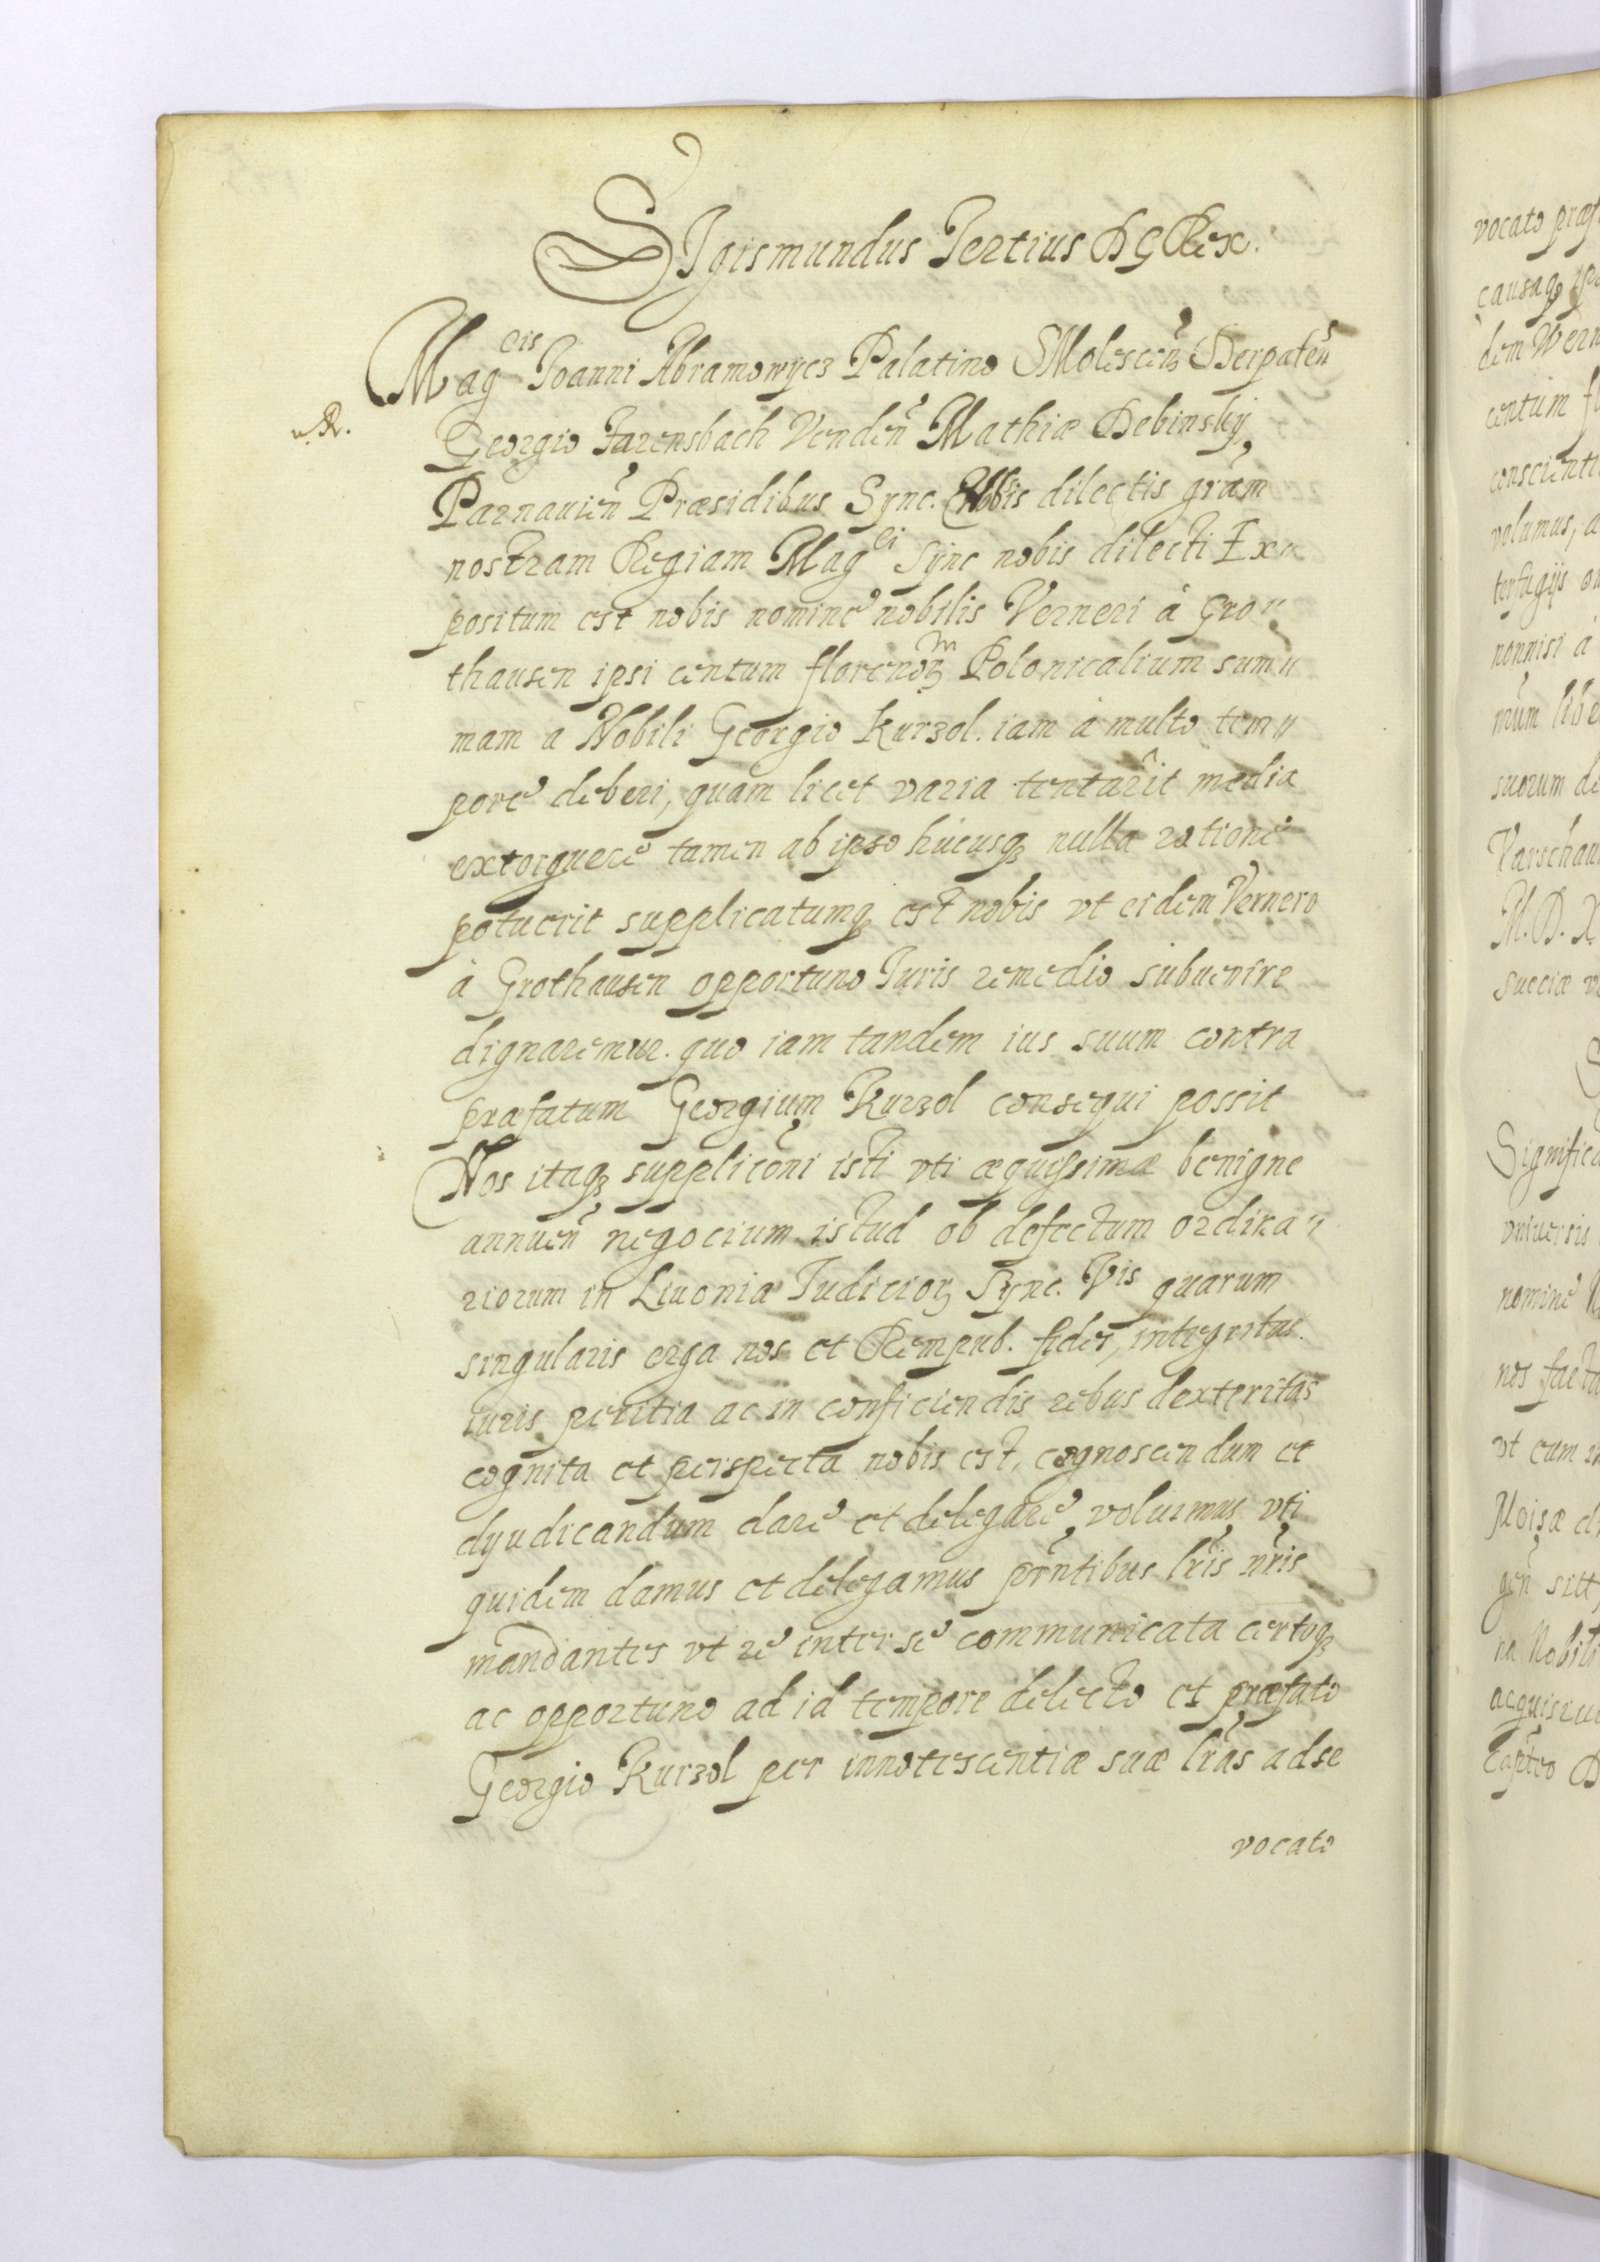 Sigismundus Tertius D G Rex.
Mag^cis Joanni Abramowycz Palatino SMolescen̄ Derpaten̄
n. R.
Georgio Farensbach Venden̄ Mathiæ Debinskij
Parnauien̄ Præsidibus Sync. Nobis dilectis gram̄
nostram Regiam Mag^ci Sync nobis dilecti Ex„
positum est nobis nomine nobilis Verneri à Gro„
thausen ipsi centum florenoꝝ^m Polonicalium sum„
mam a Nobili Georgio Kurzol. iam à multo tem„
pore deberi, quam licet varia tentarit media
extorquere tamen ab ipso hucusqꝫ nulla ratione
potuerit supplicatumqꝫ est nobis vt eidem Vernero
à Grothausen opportuno Juris remedio subuenire
dignaremur. quo iam tandem ius suum contra
præfatum Georgium Kurzol consequi possit
Nos itaqꝫ supplicōni isti vti æquissimæ benigne
annuen̄ negocium istud ob defectum ordina„
riorum in Liuonia Judicioꝝ Sync. V̄is quarum
singularis erga nos et Rempub. fides, integritas
iuris peritia ac in conficiendis rebus dexteritas
cognita et perspecta nobis est, cognoscendum et
dyudicandum dare et delegare voluimus vti
quidem damus et delegamus prn̄tibus lr̄is nr̄is
mandantes vt re inter se communicata certoqꝫ
ac opportuno ad id tempore delecto et præfato
Georgio Kurzol per innotescentiæ suæ lr̄as ad se
vocato
vocato præf
causaqꝫ
dem Wern
centum fl
conscienti
volumus, a
terfugijs
nonnisi à
suorum de
Varschau
M. D. X
Sueciæ
Significa
vniuersis
nomine
nos facta
vt cum
Moisæ
gen̄ sitt
in Nobili
acquis